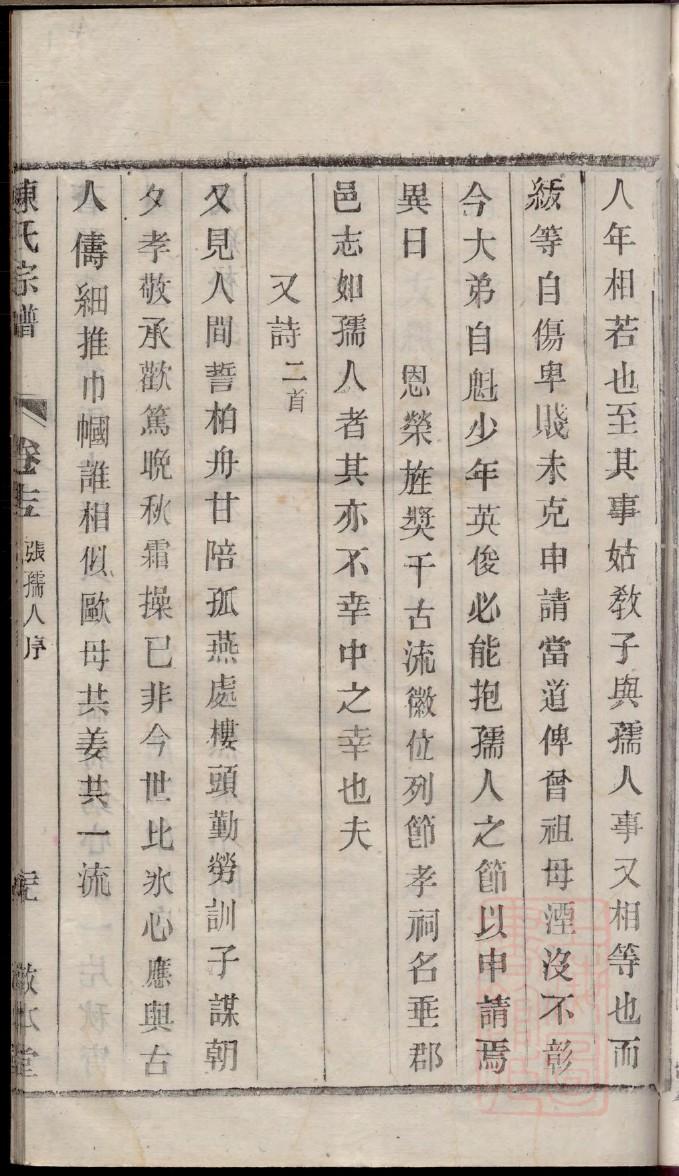 人年相若也至其事姑教子與孺人事又相等也而
紱等自傷卑賤未克申請當道俾曾祖母湮沒不彰
今大弟自魁少年英俊必能抱孺人之節以申請焉
異日　恩榮旌獎千古流徽位列節孝祠名垂郡
邑志如孺人者其亦不幸中之幸也夫
又詩二首
又見人間誓柏舟甘陪孤燕處樓頭勤勞訓子謀朝
夕孝敬承歡篤晚秋霜操已非今世比氷心應與古
人儔細推巾幗誰相似歐母共姜共一流
陳氏宗譜
張孺人序
敬本堂